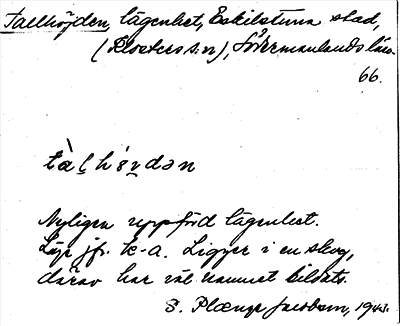 Tallhöjden, lägenhet, Eskilstuna stad,
(Klosters sn), Södermanlands län.
66.
Nyligen uppförd lägenhet.
Läge jfr. k-a. Ligger i en skog,
därav har väl namnet bildats.
S. Plænge Jacobson, 1943.